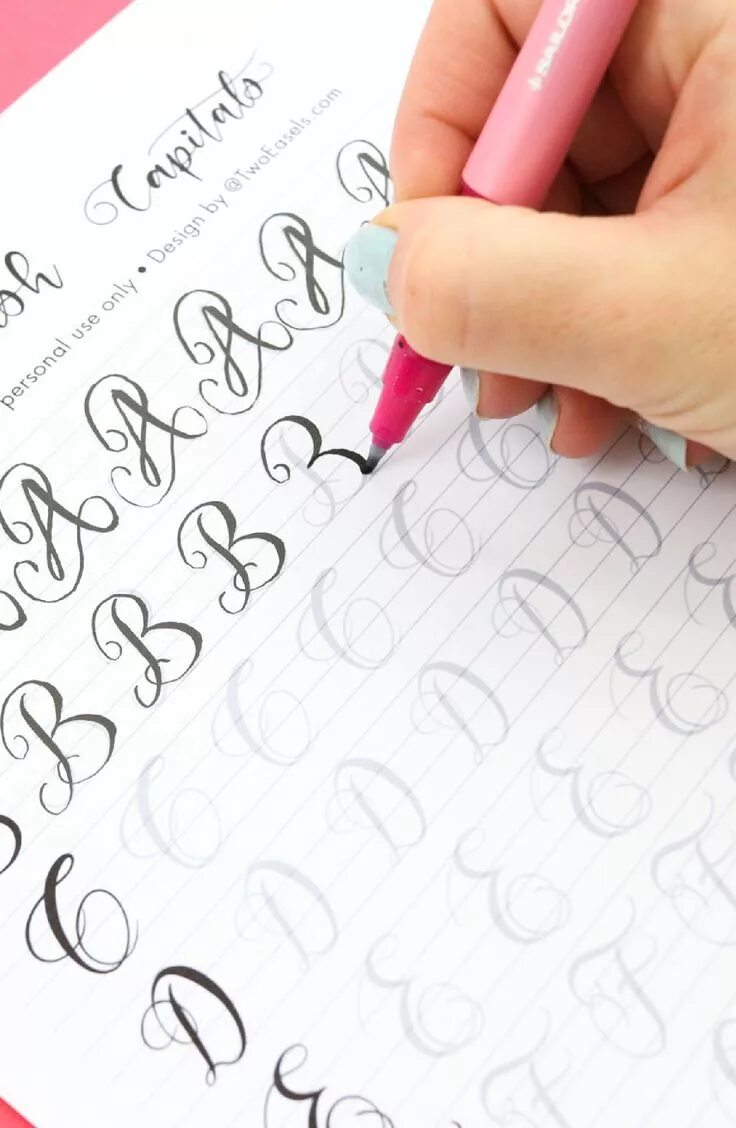 Capitals
personal use only • Design by @TwoEasels.com
A A A A A
B B B B B
C C C C C C
D D D D D D
E E E E E E
F F F
SAILOR